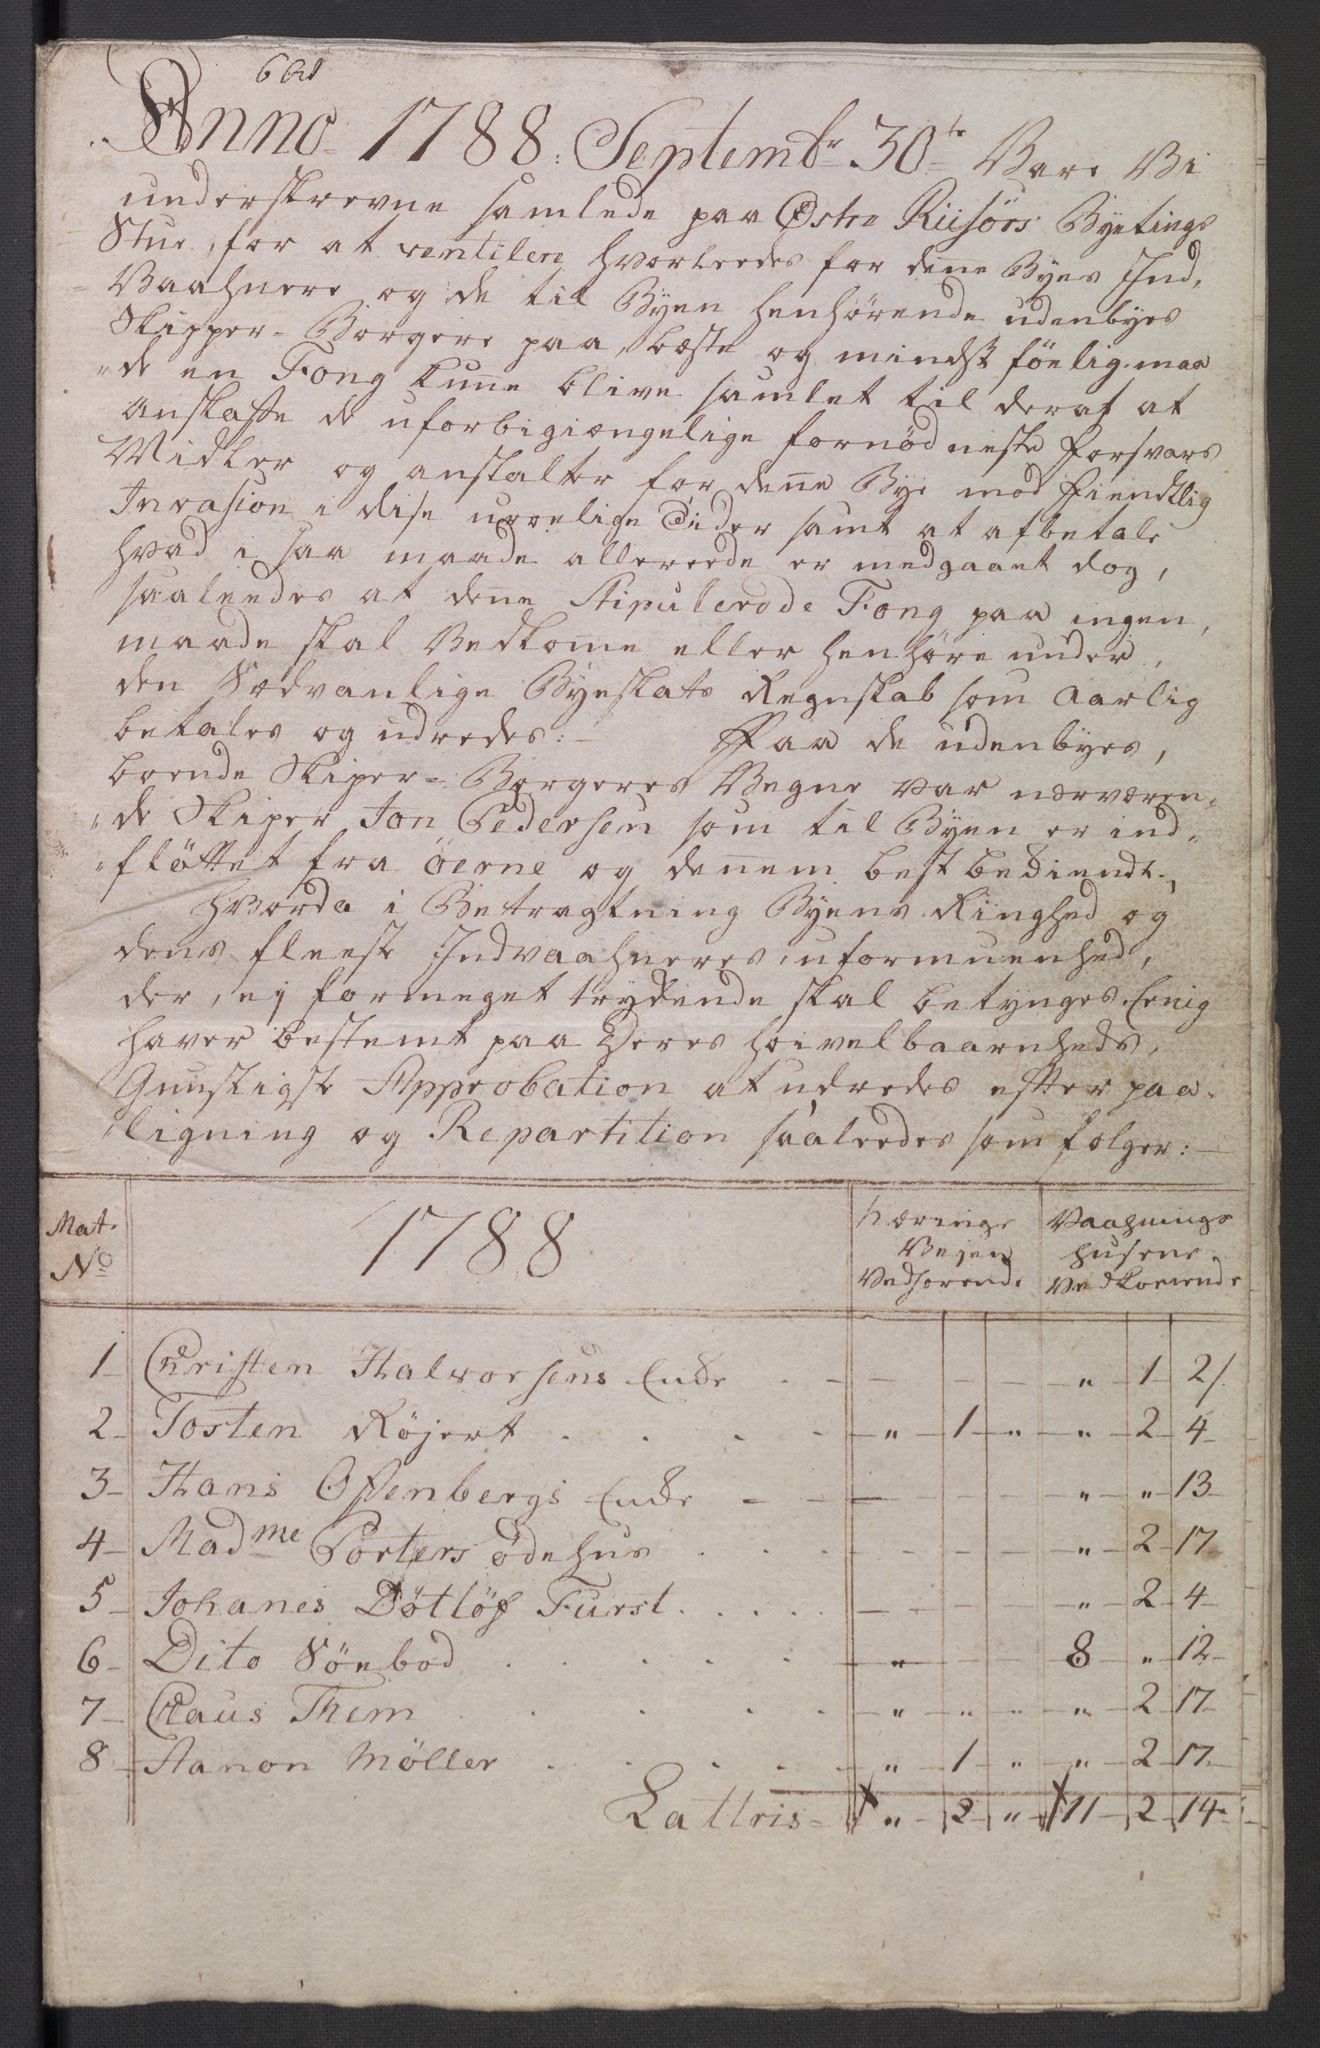 Anno 1788: Septembr 30te Vare Vi
underskrevne samlede paa Østre Riisørs Byetings
Stue, for at ventilere hvorleedes for dene Byes Ind,
Vaahnere og de til Byen henhørende udenbyes
Skipper-Borgere paa beste og mindst føelig. maa
"de en Fong kune blive samlet til deraf at
anskaffe de uforbigiængelige fornødneste forsvars
Midler og anstalter for dene Bye mod fiendtlig
Invasion i dise uroelige Tider samt at afbetale
hvad i saa maade allereede er medgaaet dog,
saaleedes at dene Stipulerede Fong paa ingen,
maade skal Vedkome eller henhøre under,
den Sædvanlige Byeskats Regnskab som Aarlig
betales og udredes:- Paa de udenbyes,
boende Skiper-Borgeres Vegne var nærværen,
"de Skiper Jon Pedersen som til Byen er ind,
"fløttet fra øerne og dennem best bekiendt.,
hvorda i Betragtning Byens Ringhed og
dens fleeste Indvaahneres uformuenhed,
der, ej formeget trykende skal betynges. Eenig
haver bestemt paa Deres høivelbaarnheds,
Gunstigste Approbation at udredes efter paa,
"ligning og Repartition saaleedes som følger:-
Mat. No 1788 Nærings Vejen Vedhørende Vaahnings husene Vedkomende
1 Christen Halvorsens Enke - - - " 1 2/.
2 Tosten Røjert " 1 " " 2 4
3 Hans Offenbergs Enke - - - " " 13
4 Madme Porters øde hus - - - " 2 17
5 Johanes Døtløf Furst - - - " 2 4
6 Dito Søebod " 8 " 12
7 Claus Them " " " " 2 17
8 Aanon Møller " 1 " " 2 17
Lattris " 2 " 11 2 14